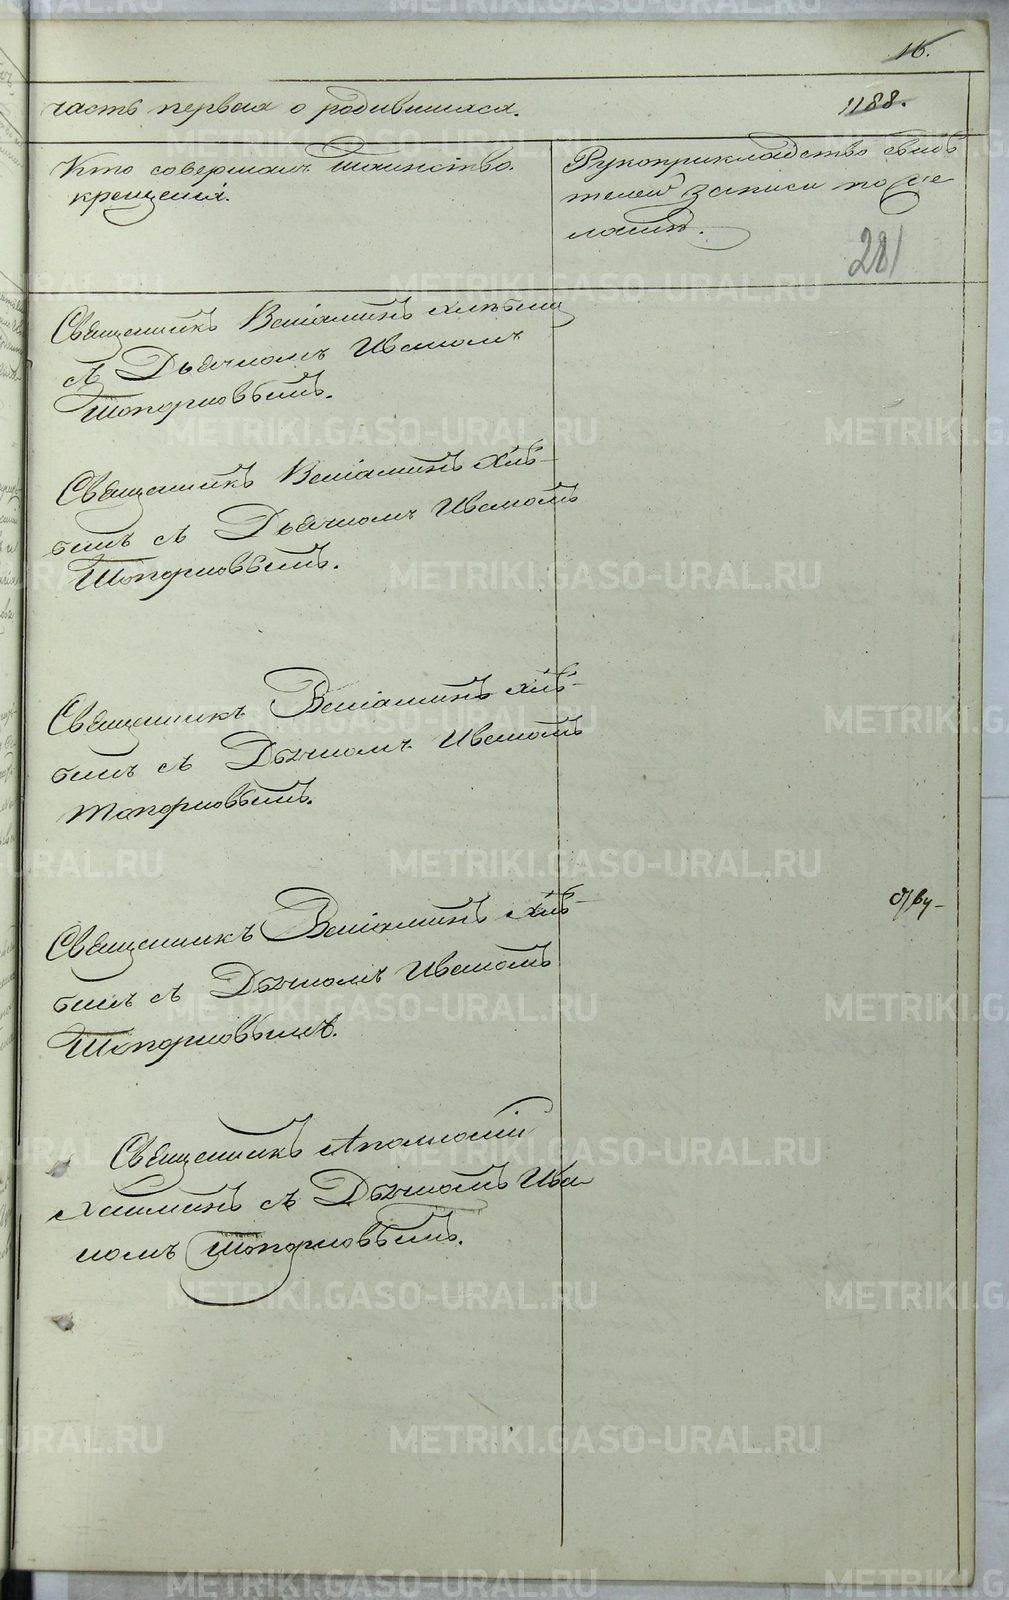 16.
часть первая о родившихся.
1188.
Кто совершалъ таинство
крещенія.
Рукоприкладство свидѣ
телей записи по же
ланію.
281
Священникъ Веніаминъ Хлѣбин
съ Дьячкомъ Иваномъ
Топорковымъ.
Священникъ Веніаминъ Хлѣ-
бинъ съ Дьячкомъ Иваномъ
Топорковымъ.
Священникъ Веніаминъ Хлѣ-
бинъ съ Дьячкомъ Иваномъ
Топорковымъ.
Священникъ Веніаминъ Хлѣ-
бинъ съ Дьячкомъ Иваномъ
Топорковымъ.
Священникъ Аполлоній
съ Дьячкомъ Ива
номъ Топорковымъ.
METRIKI.GASO-URAL.RU